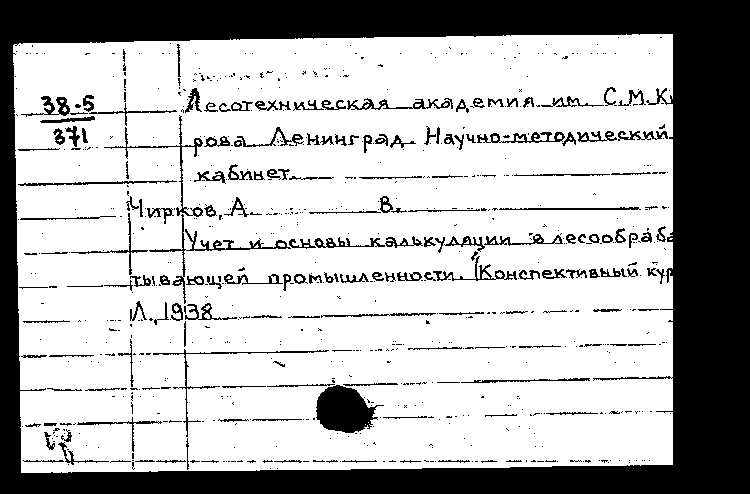 38-5
371
Лесотехническая академия им. С.М.К
рова Ленинград. Научно-методический
кабинет.
Чирков, А. В.
Учет и основы калькуляции в лесообраба
тывающей промышленности. (Конспективный кур
Л., 1938